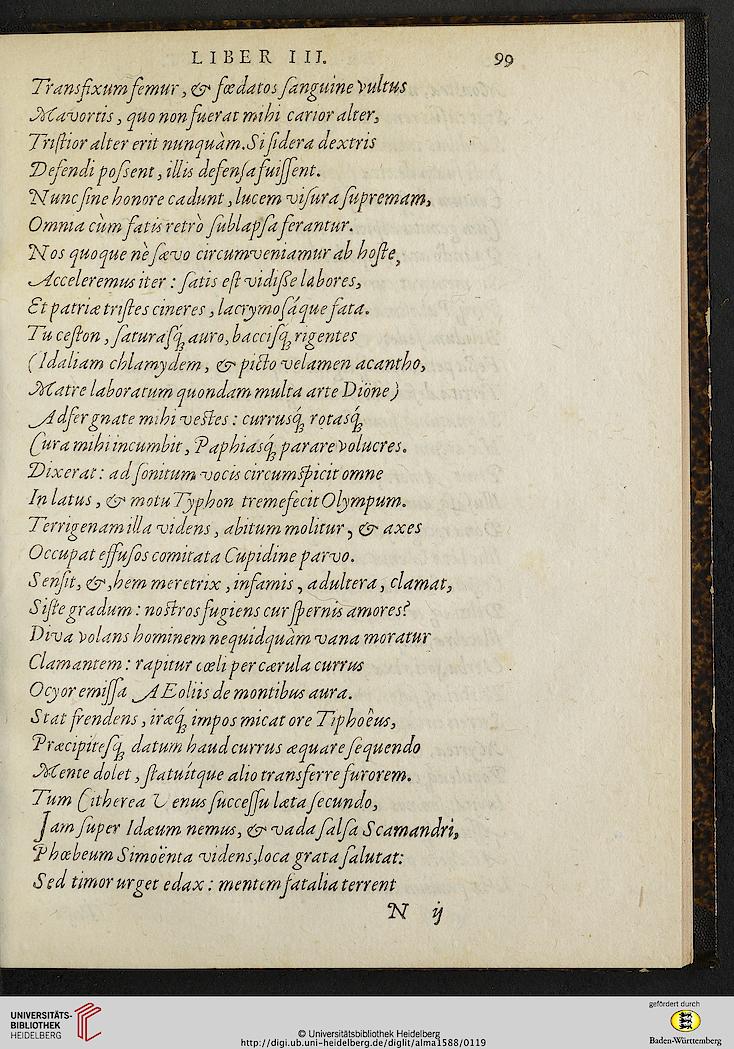 LIBER III. 99
Transfixum femur, & fœdatos ſanguine vultus
Mavortis, quo non fuerat mihi carior alter,
Triſtior alter erit nunquàm. Si ſidera dextris
Defendi poſsent, illis defenſa fuiſſent.
Nunc ſine honore cadunt, lucem viſura ſupremam,
Omnia cùm fatis retrò ſublapſa ferantur.
Nos quoque nè ſævo circumveniamur ab hoſte,
Acceleremus iter: ſatis eſt vidiſſe labores,
Et patriæ triſtes cineres, lacrymoſáque fata.
Tu ceſton, ſaturaſq́; auro, bacciſq́; rigentes
(Idaliam chlamydem, & picto velamen acantho,
Matre laboratum quondam multa arte Dione)
Adfer gnate mihi veſtes: currusq́; rotasq́;
Cura mihi incumbit, Paphiasq́; parare volucres.
Dixerat: ad ſonitum vocis circumſpicit omne
In latus, & motu Typhon tremefecit Olympum.
Terrigenam illa videns, abitum molitur, & axes
Occupat effuſos comitata Cupidine parvo.
Senſit, &, hem meretrix, infamis, adultera, clamat,
Siſte gradum: noſtros fugiens cur ſpernis amores?
Diva volans hominem nequidquàm vana moratur
Clamantem: rapitur cœli per cærula currus
Ocyor emiſſa AEoliis de montibus aura.
Stat frendens, iræq́; impos micat ore Tiphoêus,
Præcipiteſq́; datum haud currus æquare ſequendo
Mente dolet, ſtatuítque alio transferre furorem.
Tum Citherea Venus ſucceſſu læta ſecundo,
Jam ſuper Idæum nemus, & vada ſalſa Scamandri,
Phœbeum Simoënta videns, loca grata ſalutat:
Sed timor urget edax: mentem fatalia terrent
N ij
UNIVERSITÄTS-
BIBLIOTHEK
HEIDELBERG
© Universitätsbibliothek Heidelberg
http://digi.ub.uni-heidelberg.de/diglit/alma1588/0119
gefördert durch
Baden-Württemberg